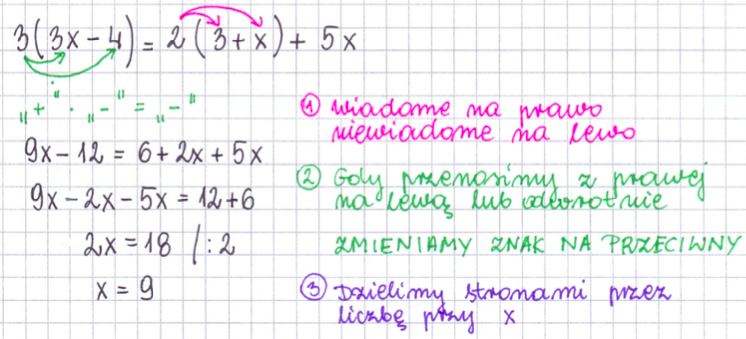 3(3x-4) = 2(3+x) + 5x
„+" · „-" = „-"
9x-12 = 6+2x+5x
9x-2x-5x = 12+6
2x = 18 /:2
x = 9
① wiadome na prawo
niewiadome na lewo
② Gdy przenosimy z prawej
na lewą lub odwrotnie
ZMIENIAMY ZNAK NA PRZECIWNY
③ Dzielimy stronami przez
liczbę przy x